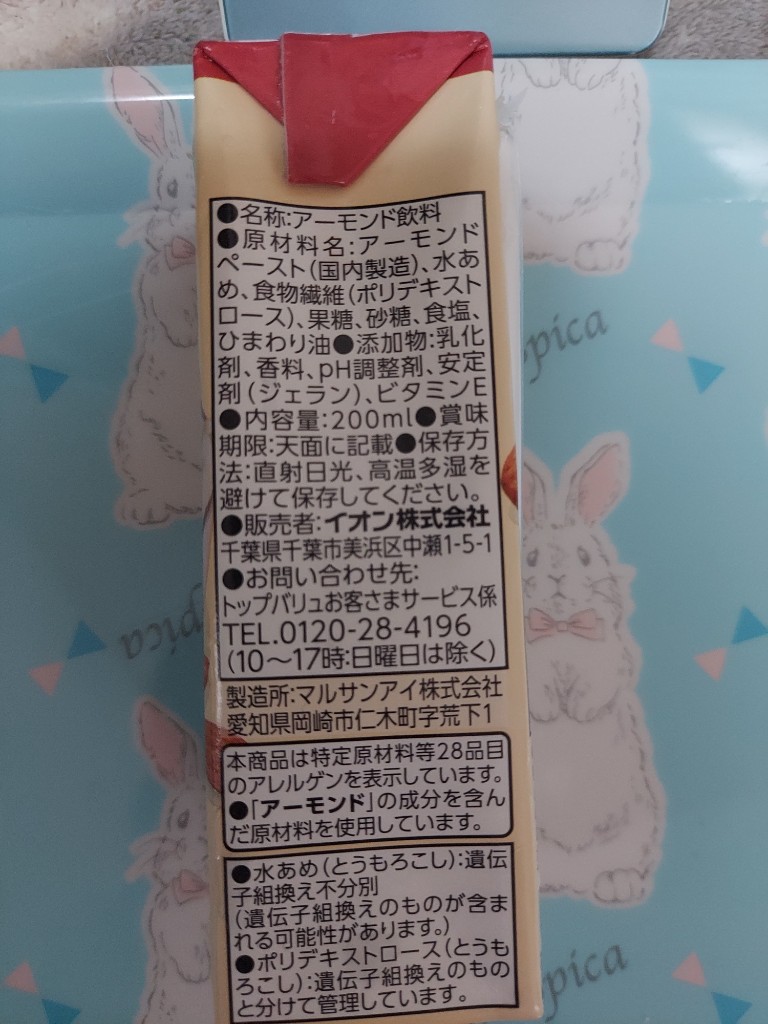 ●名称:アーモンド飲料
●原材料名:アーモンド
ペースト(国内製造)、水あ
め、食物繊維(ポリデキスト
ロース)、果糖、砂糖、食塩、
ひまわり油●添加物:乳化
剤、香料、pH調整剤、安定
剤(ジェラン)、ビタミンE
●内容量:200ml●賞味
期限:天面に記載●保存方
法:直射日光、高温多湿を
避けて保存してください。
●販売者:イオン株式会社
千葉県千葉市美浜区中瀬1-5-1
●お問い合わせ先:
トップバリュお客さまサービス係
TEL.0120-28-4196
(10〜17時:日曜日は除く)
製造所:マルサンアイ株式会社
愛知県岡崎市仁木町字荒下1
本商品は特定原材料等28品目
のアレルゲンを表示しています。
●「アーモンド」の成分を含ん
だ原材料を使用しています。
●水あめ(とうもろこし):遺伝
子組換え不分別
(遺伝子組換えのものが含ま
れる可能性があります。)
●ポリデキストロース(とうも
ろこし):遺伝子組換えのもの
と分けて管理しています。
pica
pica
pica